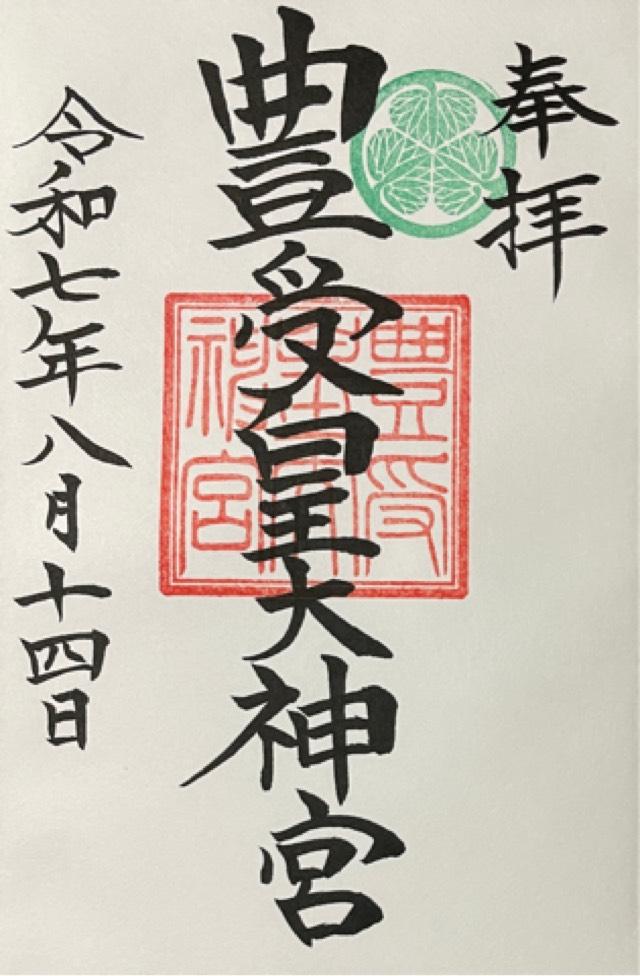 奉拝
豊受皇大神宮
豊受
皇大
神宮
令和七年八月十四日